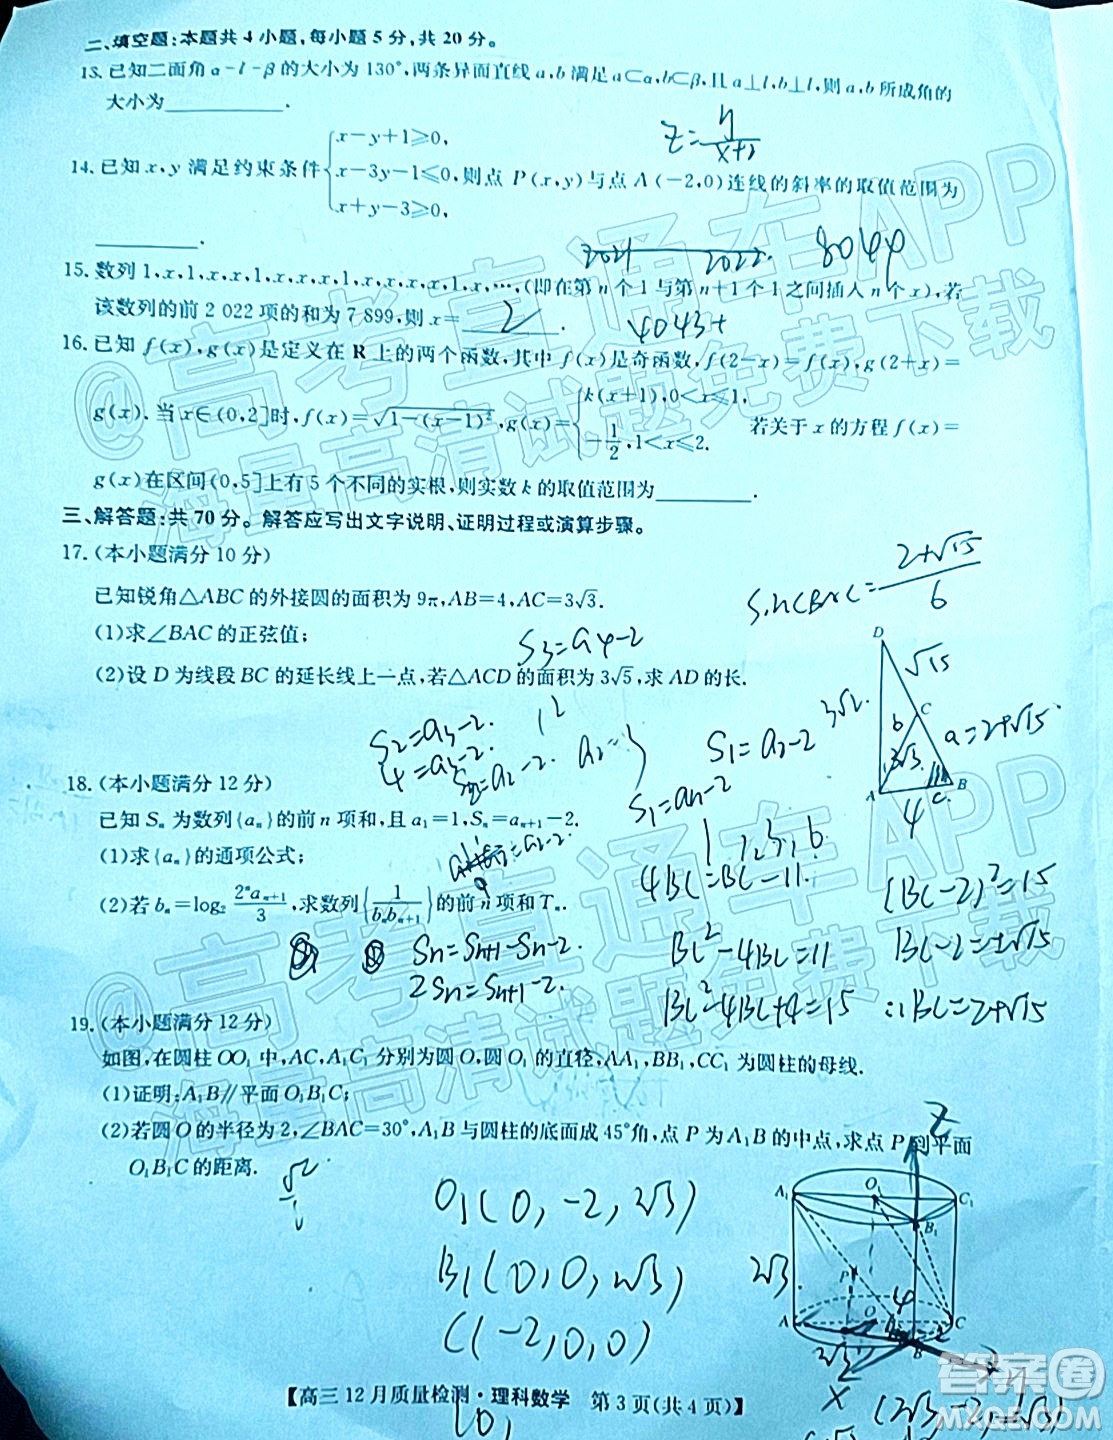 二、填空题:本题共4小题,每小题5分,共20分。
13.已知二面角α-l-β的大小为130°,两条异面直线a,b满足a⊂α,b⊂β,且a⊥l,b⊥l,则a,b所成角的
大小为________.
z=y/(x+2)
14.已知x,y满足约束条件{x-y+1≥0, x-3y-1≤0, x+y-3≥0,则点P(x,y)与点A(-2,0)连线的斜率的取值范围为
________.
2021 2022. 8044
15.数列1,x,1,x,x,1,x,x,x,1,x,x,x,x,1,x,…,(即在第n个1与第n+1个1之间插入n个x),若
该数列的前2 022项的和为7 899,则x=2.
4043+
16.已知f(x),g(x)是定义在R上的两个函数,其中f(x)是奇函数,f(2-x)=f(x),g(2+x)=
g(x).当x∈(0,2]时,f(x)=√(1-(x-1)²),g(x)={k(x+1),0<x≤1, -1/2,1<x≤2. 若关于x的方程f(x)=
g(x)在区间(0,5]上有5个不同的实根,则实数k的取值范围为________.
三、解答题:共70分。解答应写出文字说明、证明过程或演算步骤。
17.(本小题满分10分)
已知锐角△ABC的外接圆的面积为9π,AB=4,AC=3√3.
(1)求∠BAC的正弦值;
(2)设D为线段BC的延长线上一点,若△ACD的面积为3√5,求AD的长.
S3=a4-2
S2=a3-2.
4=a3-2.
S1=a2-2
S1=an-2
1,2,3,6
D
√15
C
a=2+√15
A
B
4
18.(本小题满分12分)
已知Sn为数列{an}的前n项和,且a1=1,Sn=an+1-2.
(1)求{an}的通项公式;
(2)若bn=log₂(2ⁿan+1/3),求数列{1/(bnbn+1)}的前n项和Tn.
Sn=Sn+1-Sn-2.
2Sn=Sn+1-2.
4BC=BC²-11.
BC²-4BC=11
BC²-4BC+4=15
(BC-2)²=15
BC-2=±√15
∴BC=2+√15
19.(本小题满分12分)
如图,在圆柱OO1中,AC,A1C1分别为圆O,圆O1的直径,AA1,BB1,CC1为圆柱的母线.
(1)证明:A1B∥平面O1B1C;
(2)若圆O的半径为2,∠BAC=30°,A1B与圆柱的底面成45°角,点P为A1B的中点,求点P到平面
O1B1C的距离.
O1(0,-2,2√3)
B1(0,0,2√3)
C(-2,0,0)
Z
A1 O1 C1
B1
2√3
P
A O C
B
X
【高三12月质量检测·理科数学 第3页(共4页)】
@高考直通车APP
海量高清试题免费下载
@高考直通车APP
海量高清试题免费下载
答案圈
MXQE.COM